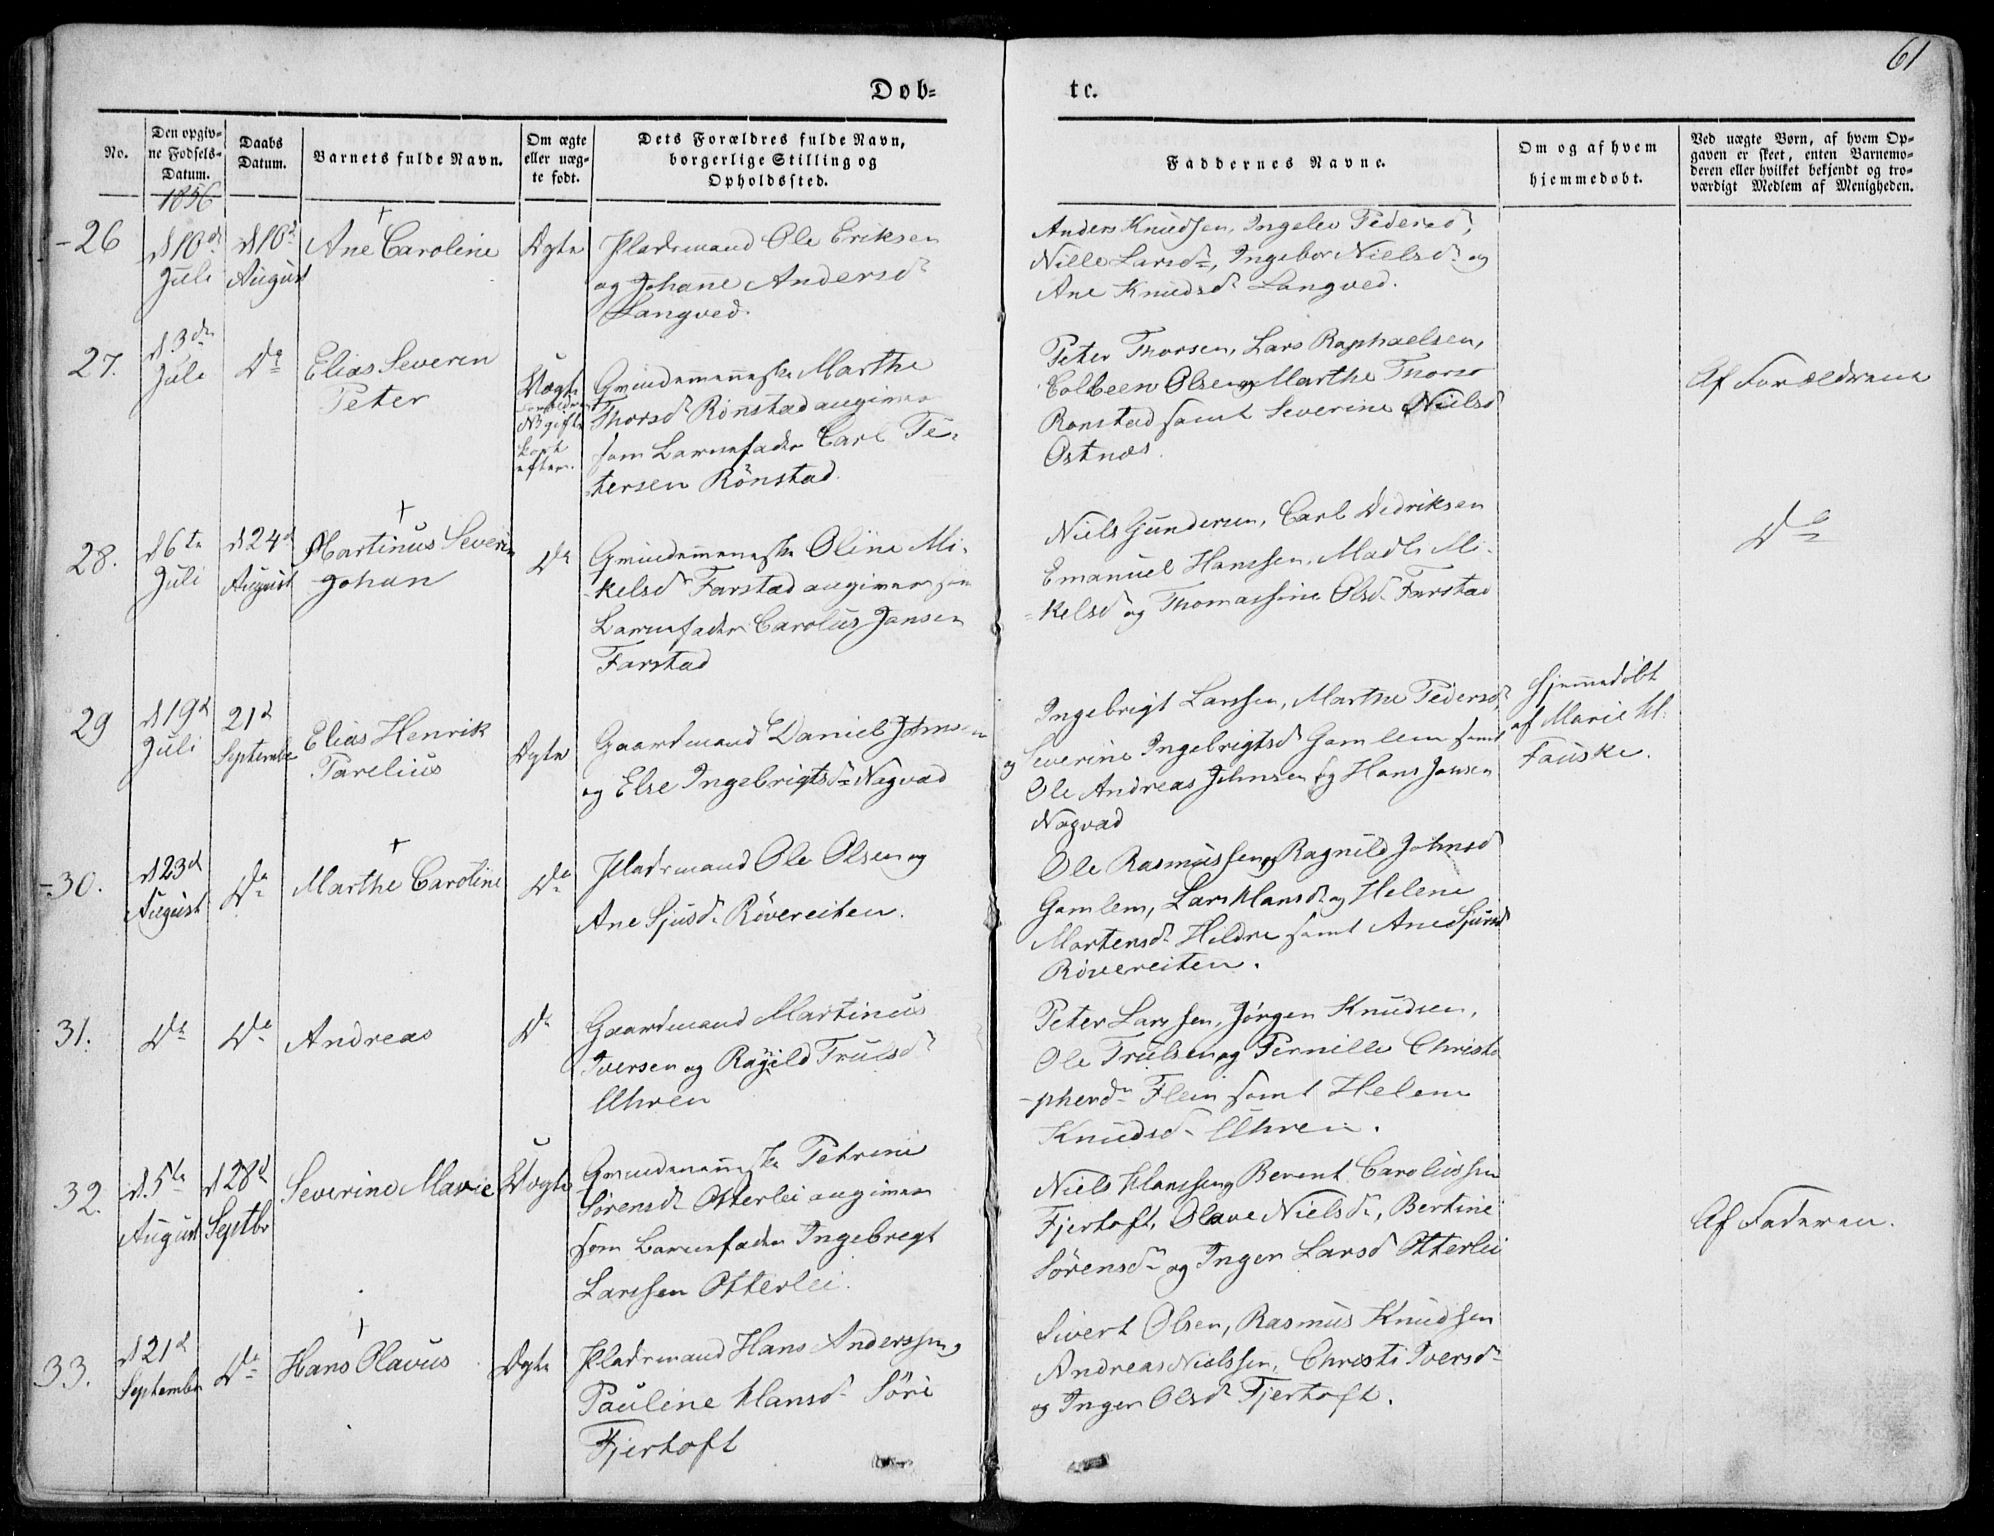 61
Døb=
te.
No.
Den opgiv-
ne Fødsels-
Datum.
Daabs
Datum.
Barnets fulde Navn.
Om ægte
eller uæg-
te født.
Dets Forældres fulde Navn,
borgerlige Stilling og
Opholdssted.
Faddernes Navne.
Om og af hvem
hjemmedøbt.
Ved uægte Børn, af hvem Op-
gaven er skeet, enten Barnemo-
deren eller hvilket bekjendt og tro-
værdigt Medlem af Menigheden.
1856
26
d 10d
Juli
d 10d
August
+
Ane Caroline
Ægte
Pladsmand Ole Eriksen
og Johanne Andersd
Langved.
Anders Knudsen, Ingelev Pedersd,
Nille Larsd, Ingebor Nielsd og
Ane Knudsd Langved.
27.
d. 3de
Juli
Do
Elias Severin
Peter
Uægte
Forældrene
gift
kort
efter.
Qvindemenneske Marthe
Thorsd Rønstad angiver
som Barnefader Carl Pe-
tersen Rønstad
Peter Thorsen, Lars Raphaelsen,
Colbeen Olsen og Marthe Thorsd
Rønstad samt Severine Nielsd
Østnæs.
Af Forældrene
28.
d 6te
Juli
d 24d
August
+
Martinus Severin
Johan
Do
Qvindemenneske Oline Mi-
kelsd Farstad angiver som
Barnefader Carolus Jansen
Farstad
Niels Gundersen, Carl Dedriksen
Emanuel Hanssen, Madli Mi-
kelsd og Thomassine Olsd Farstad
Do
29
d 19d
Juli
21d
September
Elias Henrik
Parelius
Ægte
Gaardmand Daniel Johnsen
og Else Ingebrigtsd Nogvad
Ingebrigt Larssen, Marthe Pedersd
og Severine Ingebrigtsd Gamlem samt
Ole Andreas Johnsen og Hans Jansen
Nogvad
Hjemmedøbt
af Marie M.
Fauske.
30.
d 23d
August
Do
+
Marthe Caroline
Do
Pladsmand Ole Olsen og
Ane Sjusd Røvereiten.
Ole Rasmussen og Ragnild Johnsd
Gamlem, Lars Hansd og Helene
Mortensd Hildre samt Ane Sjursd
Røvereiten.
31.
Do
Do
Andreas
Do
Gaardmand Martinus
Iversen og Ragnild Trulsd
Uhren
Peter Larssen, Jørgen Knudsen,
Ole Trulsen og Pernille Christo
-phersd Flem samt Helene
Knudsd Uhren.
32.
d. 5te
August
d 28d
Septbr
Severine Marie
Uægte
Qvindemenneske Petrine
Sørensd Otterlei angiver
som Barnefader Ingebregt
Larssen Otterlei.
Niels Hanssen og Berent Carolussen
Fjertoft, Olave Nielsd, Bertine
Sørensd og Inger Larsd Otterlei
Af Faderen.
33.
d 21d
September
Do
+
Hans Olavus
Ægte
Pladsmand Hans Anderssen og
Pauline Hansd Søre
Fjertoft
Sivert Olsen, Rasmus Knudsen
Andreas Nielssen, Christi Iversd
og Inger Olsd Fjertoft.